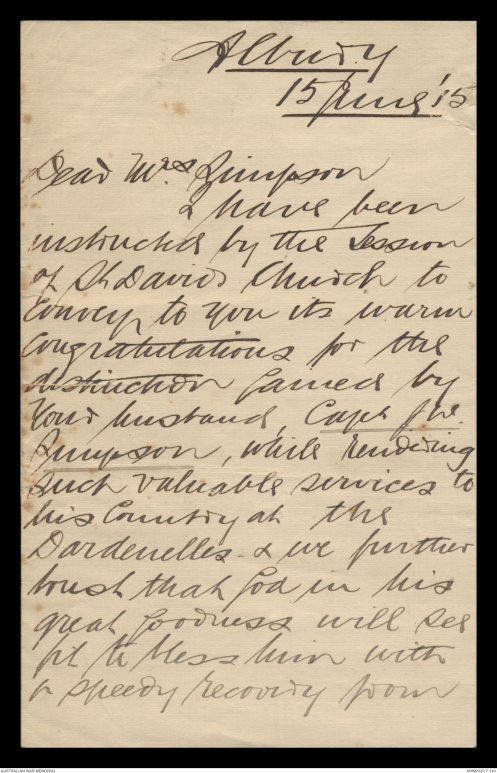 Albury
15 June '15
Dear Mrs Simpson
I have been
instructed by the Session
of St Davids Church to
convey to you its warm
congratulations for the
distinction gained by
your husband, Capt
Simpson, while rendering
such valuable services to
his Country at the
Dardenelles - & we further
trust that God in his
great goodness will see
fit to bless him with
a speedy recovery from
AUSTRALIAN WAR MEMORIAL